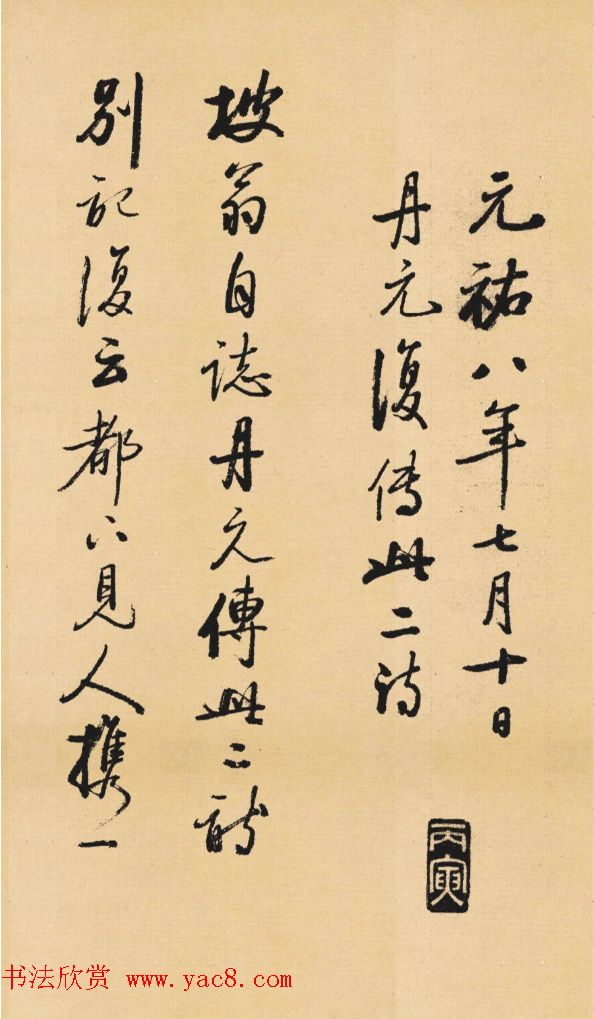 元祐八年七月十日
丹元復传此二诗
坡翁自誌丹元傳此二詩
别記復云都下見人攜一
丙寅
书法欣赏 www.yac8.com